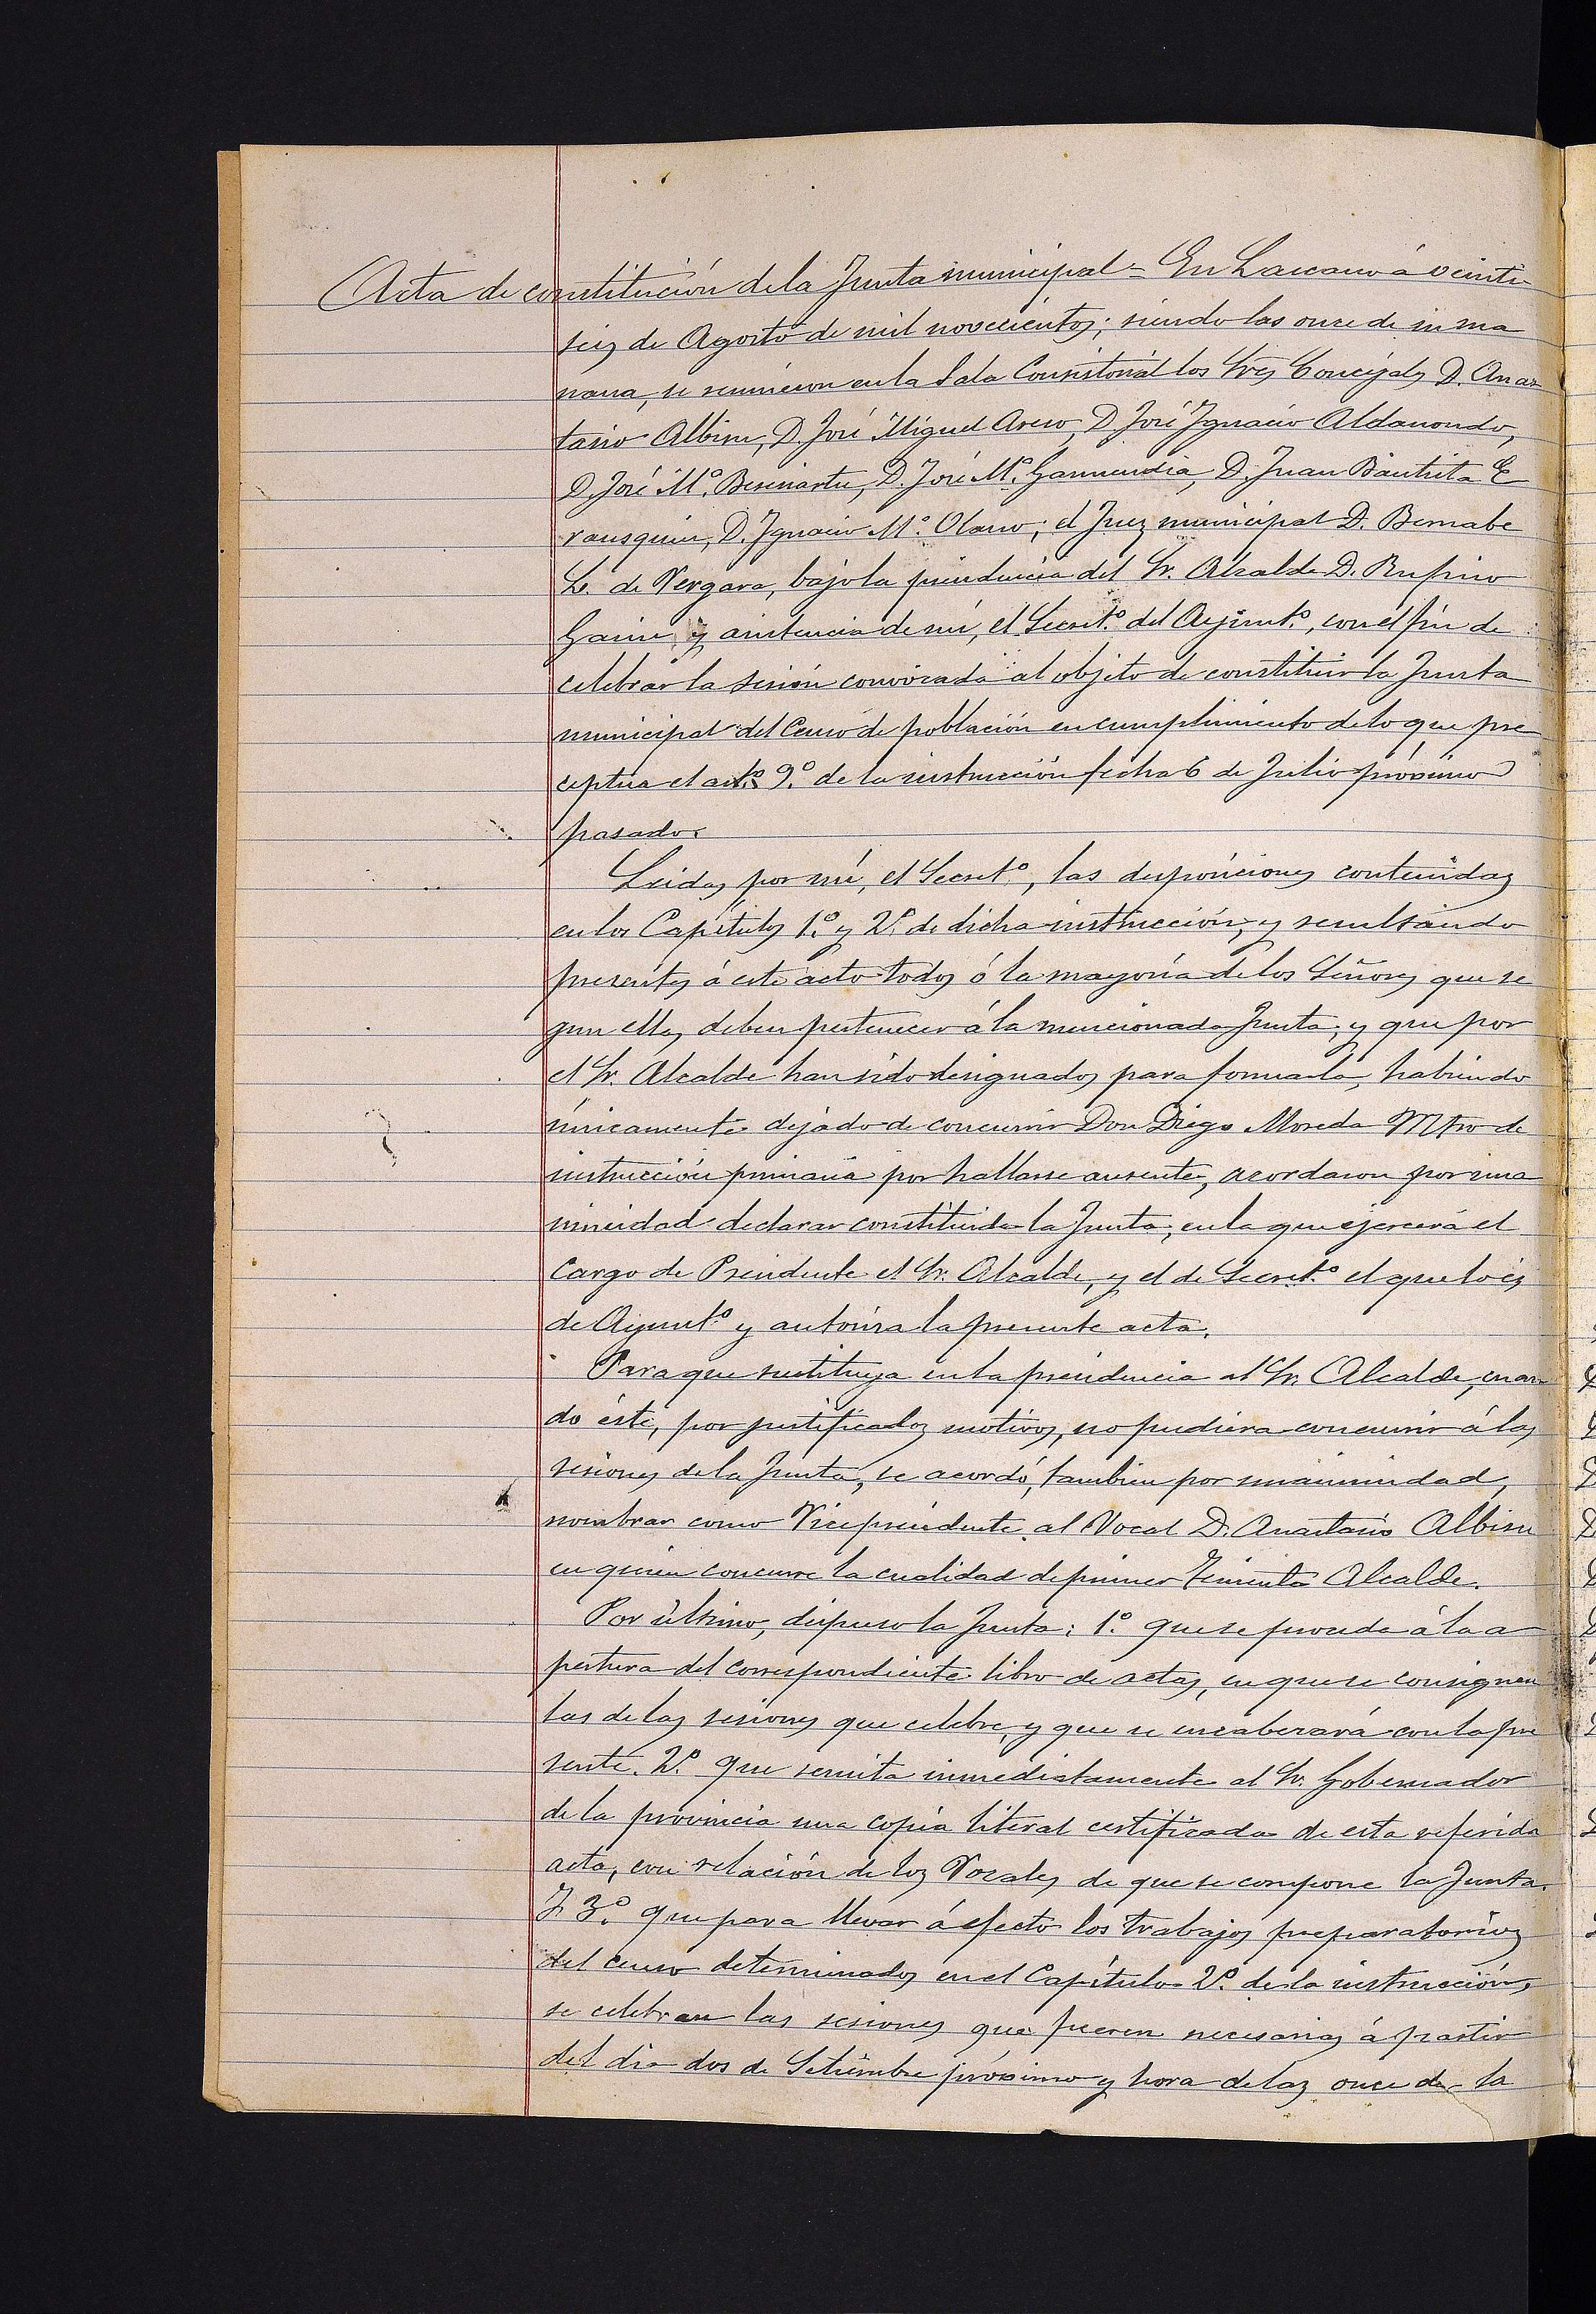 Acta de constitución de la Junta municipal = En Lazcano á veinti
seis de Agosto de mil novecientos; siendo las once de su ma
ñana, se reunieron en la Sala Consistorial los Sres Concejales D. Anas
tasio Albisu, D. José Miguel Areso, D. José Ignacio Aldanondo,
D. José Mª. Beriartu, D. José Mª. Garmendia, D. Juan Bautista E
rausquin, D. Ignacio Mª. Olano; el Juez municipal D. Bernabe
L. de Vergara, bajo la presidencia del Sr. Alcalde D. Rufino
Garin y asistencia de mi, el Secretº. del Ayuntº., con el fin de
celebrar la sesión convocada al objeto de constituir la Junta
municipal del Censo de población en cumplimiento de lo que pre
ceptúa el artº. 9º. de la instrucción fecha 6 de Julio próximo
pasado.
Leidas por mi, el Secretº., las disposiciones contenidas
en los Capítulos 1º. y 2º. de dicha instrucción, y resultando
presentes á este acto todos ó la mayoría de los Señores que se
gun ellas deben pertenecer á la mencionada Junta, y que por
el Sr. Alcalde han sido designados para formarla, habiendo
únicamente dejado de concurrir Don Diego Moreda Mtro de
instrucción primaria por hallarse ausente, acordaron por una
nimidad declarar constituida la Junta, en la que ejercerá el
cargo de Presidente el Sr. Alcalde, y el de Secretº. el que lo es
de Ayuntº. y autoriza la presente acta.
Para que sustituya en la presidencia al Sr. Alcalde, cuan
do éste, por justificados motivos, no pudiera concurrir á las
sesiones de la Junta, se acordó, tambien por unanimidad,
nombrar como Vicepresidente al Vocal D. Anastasio Albisu
en quien concurre la cualidad de primer Teniente Alcalde.
Por último, dispuso la Junta: 1º. que se proceda á la a
pertura del correspondiente libro de actas, en que se consignen
las de las sesiones que celebre, y que se encabezará con la pre
sente. 2º. que remita inmediatamente al Sr. Gobernador
de la provincia una copia literal certificada de esta referida
acta, con relación de los Vocales de que se compone la Junta.
Y 3º. que para llevar á efecto los trabajos preparatorios
del censo determinados en el Capítulo 2º. de la instrucción,
se celebran las sesiones que fueren necesarias á partir
del dia dos de Setiembre próximo y hora de las once de la